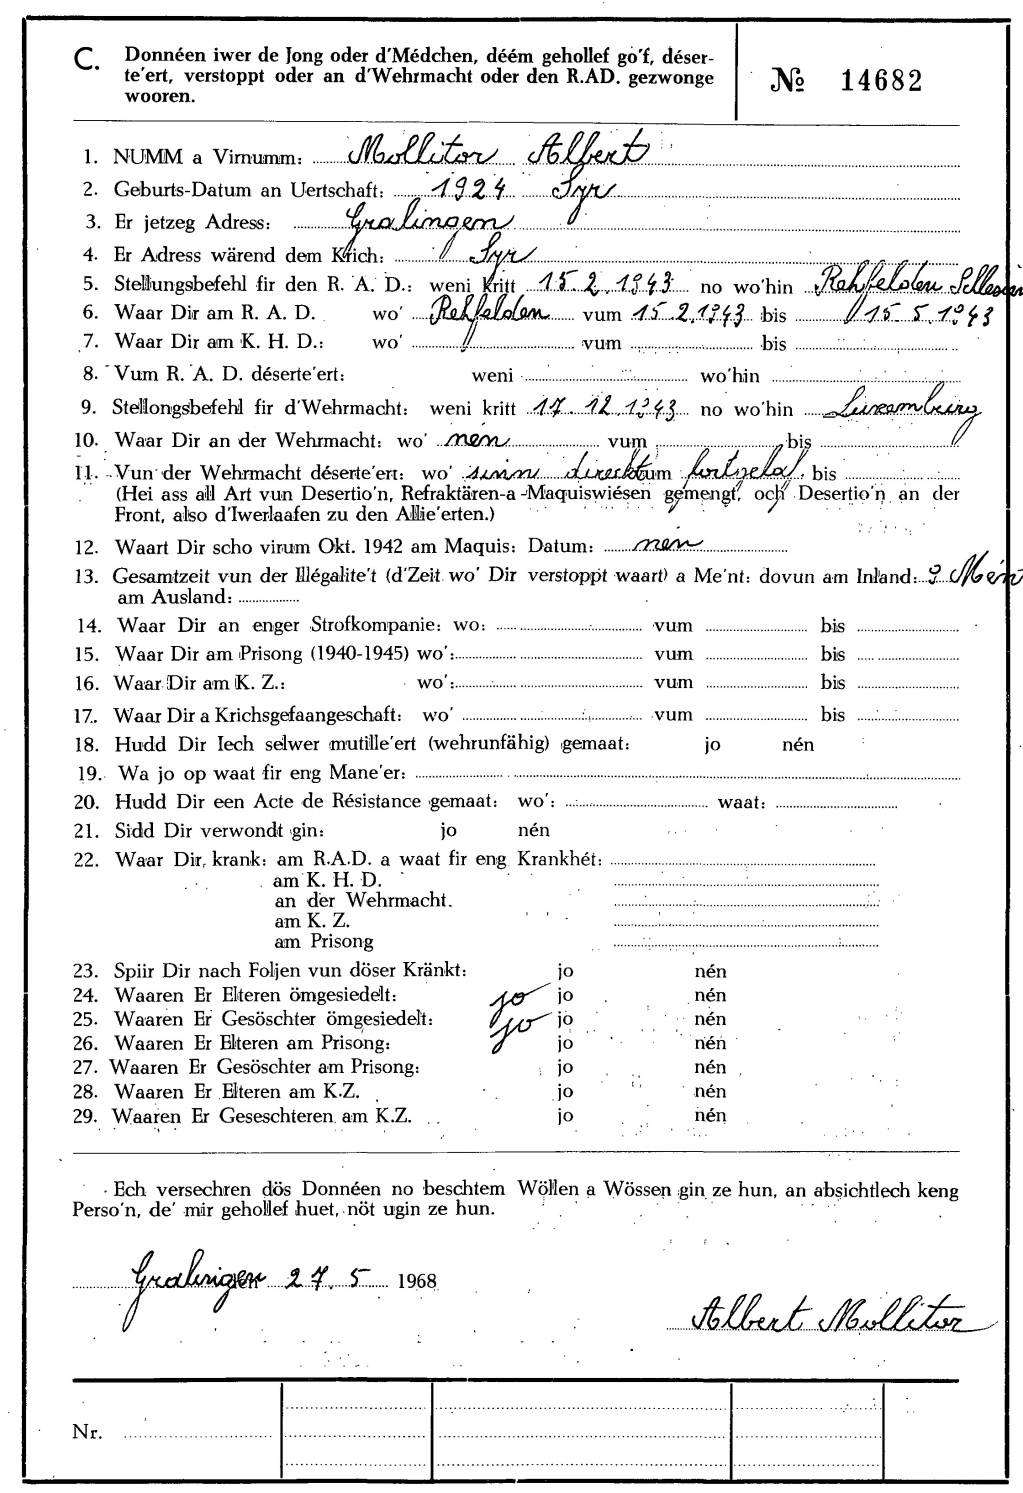 C. Donnéen iwer de Jong oder d'Médchen, déém gehollef go'f, déser-
te'ert, verstoppt oder an d'Wehrmacht oder den R.AD. gezwonge
wooren.
№ 14682
1. NUMM a Virnumm: Mollitor Albert
2. Geburts-Datum an Uertschaft: 1924 Syr
3. Er jetzeg Adress: Gralingen
4. Er Adress wärend dem Krich: Syr
5. Stellungsbefehl fir den R. A. D.: weni kritt 15 2. 1943 no wo'hin Rehfelden
6. Waar Dir am R. A. D. wo' Rehfelden vum 15.2.1943 bis 15. 5. 1943
7. Waar Dir am K. H. D.: wo' vum bis
8. Vum R. A. D. déserte'ert: weni wo'hin
9. Stellongsbefehl fir d'Wehrmacht: weni kritt 17. 12. 1943 no wo'hin Luxemburg
10. Waar Dir an der Wehrmacht: wo' nen vum bis
11. Vun der Wehrmacht déserte'ert: wo' sinn direckt vum bis
(Hei ass all Art vun Desertio'n, Refraktären-a-Maquiswiésen gemengt, och Desertio'n an der
Front, also d'Iwerlaafen zu den Allie'erten.)
12. Waart Dir scho virum Okt. 1942 am Maquis: Datum: nen
13. Gesamtzeit vun der Illégalite't (d'Zeit wo' Dir verstoppt waart) a Me'nt: dovun am Inland: 9 Mén
am Ausland:
14. Waar Dir an enger Strofkompanie: wo: vum bis
15. Waar Dir am Prisong (1940-1945) wo': vum bis
16. Waar Dir am K. Z.: wo': vum bis
17. Waar Dir a Krichsgefaangeschaft: wo' vum bis
18. Hudd Dir Iech selwer mutille'ert (wehrunfähig) gemaat: jo nén
19. Wa jo op waat fir eng Mane'er:
20. Hudd Dir een Acte de Résistance gemaat: wo': waat:
21. Sidd Dir verwondt gin: jo nén
22. Waar Dir krank: am R.A.D. a waat fir eng Krankhét:
am K. H. D.
an der Wehrmacht.
am K. Z.
am Prisong
23. Spiir Dir nach Foljen vun döser Kränkt: jo nén
24. Waaren Er Elteren ömgesiedelt: jo jo nén
25. Waaren Er Gesöschter ömgesiedelt: jo jo nén
26. Waaren Er Elteren am Prisong: jo nén
27. Waaren Er Gesöschter am Prisong: jo nén
28. Waaren Er Elteren am K.Z. jo nén
29. Waaren Er Geseschteren am K.Z. jo nén
Ech versechren dös Donnéen no beschtem Wöllen a Wössen gin ze hun, an absichtlech keng
Perso'n, de' mir gehollef huet, nöt ugin ze hun.
Gralingen 27. 5 1968
Albert Mollitor
Nr.